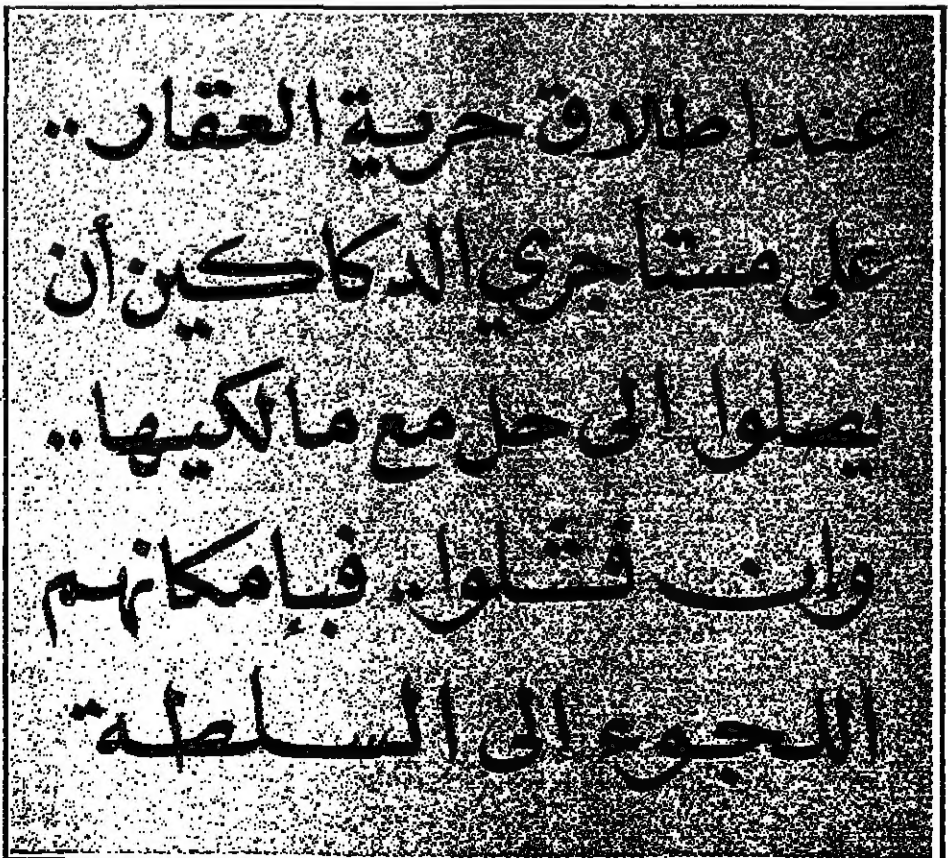 عند إطلاق حرية العقار..
على مستأجري الدكاكين أن
يصلوا الى حل مع مالكيها..
وإن فشلوا.. فبإمكانهم
اللجوء الى السلطة